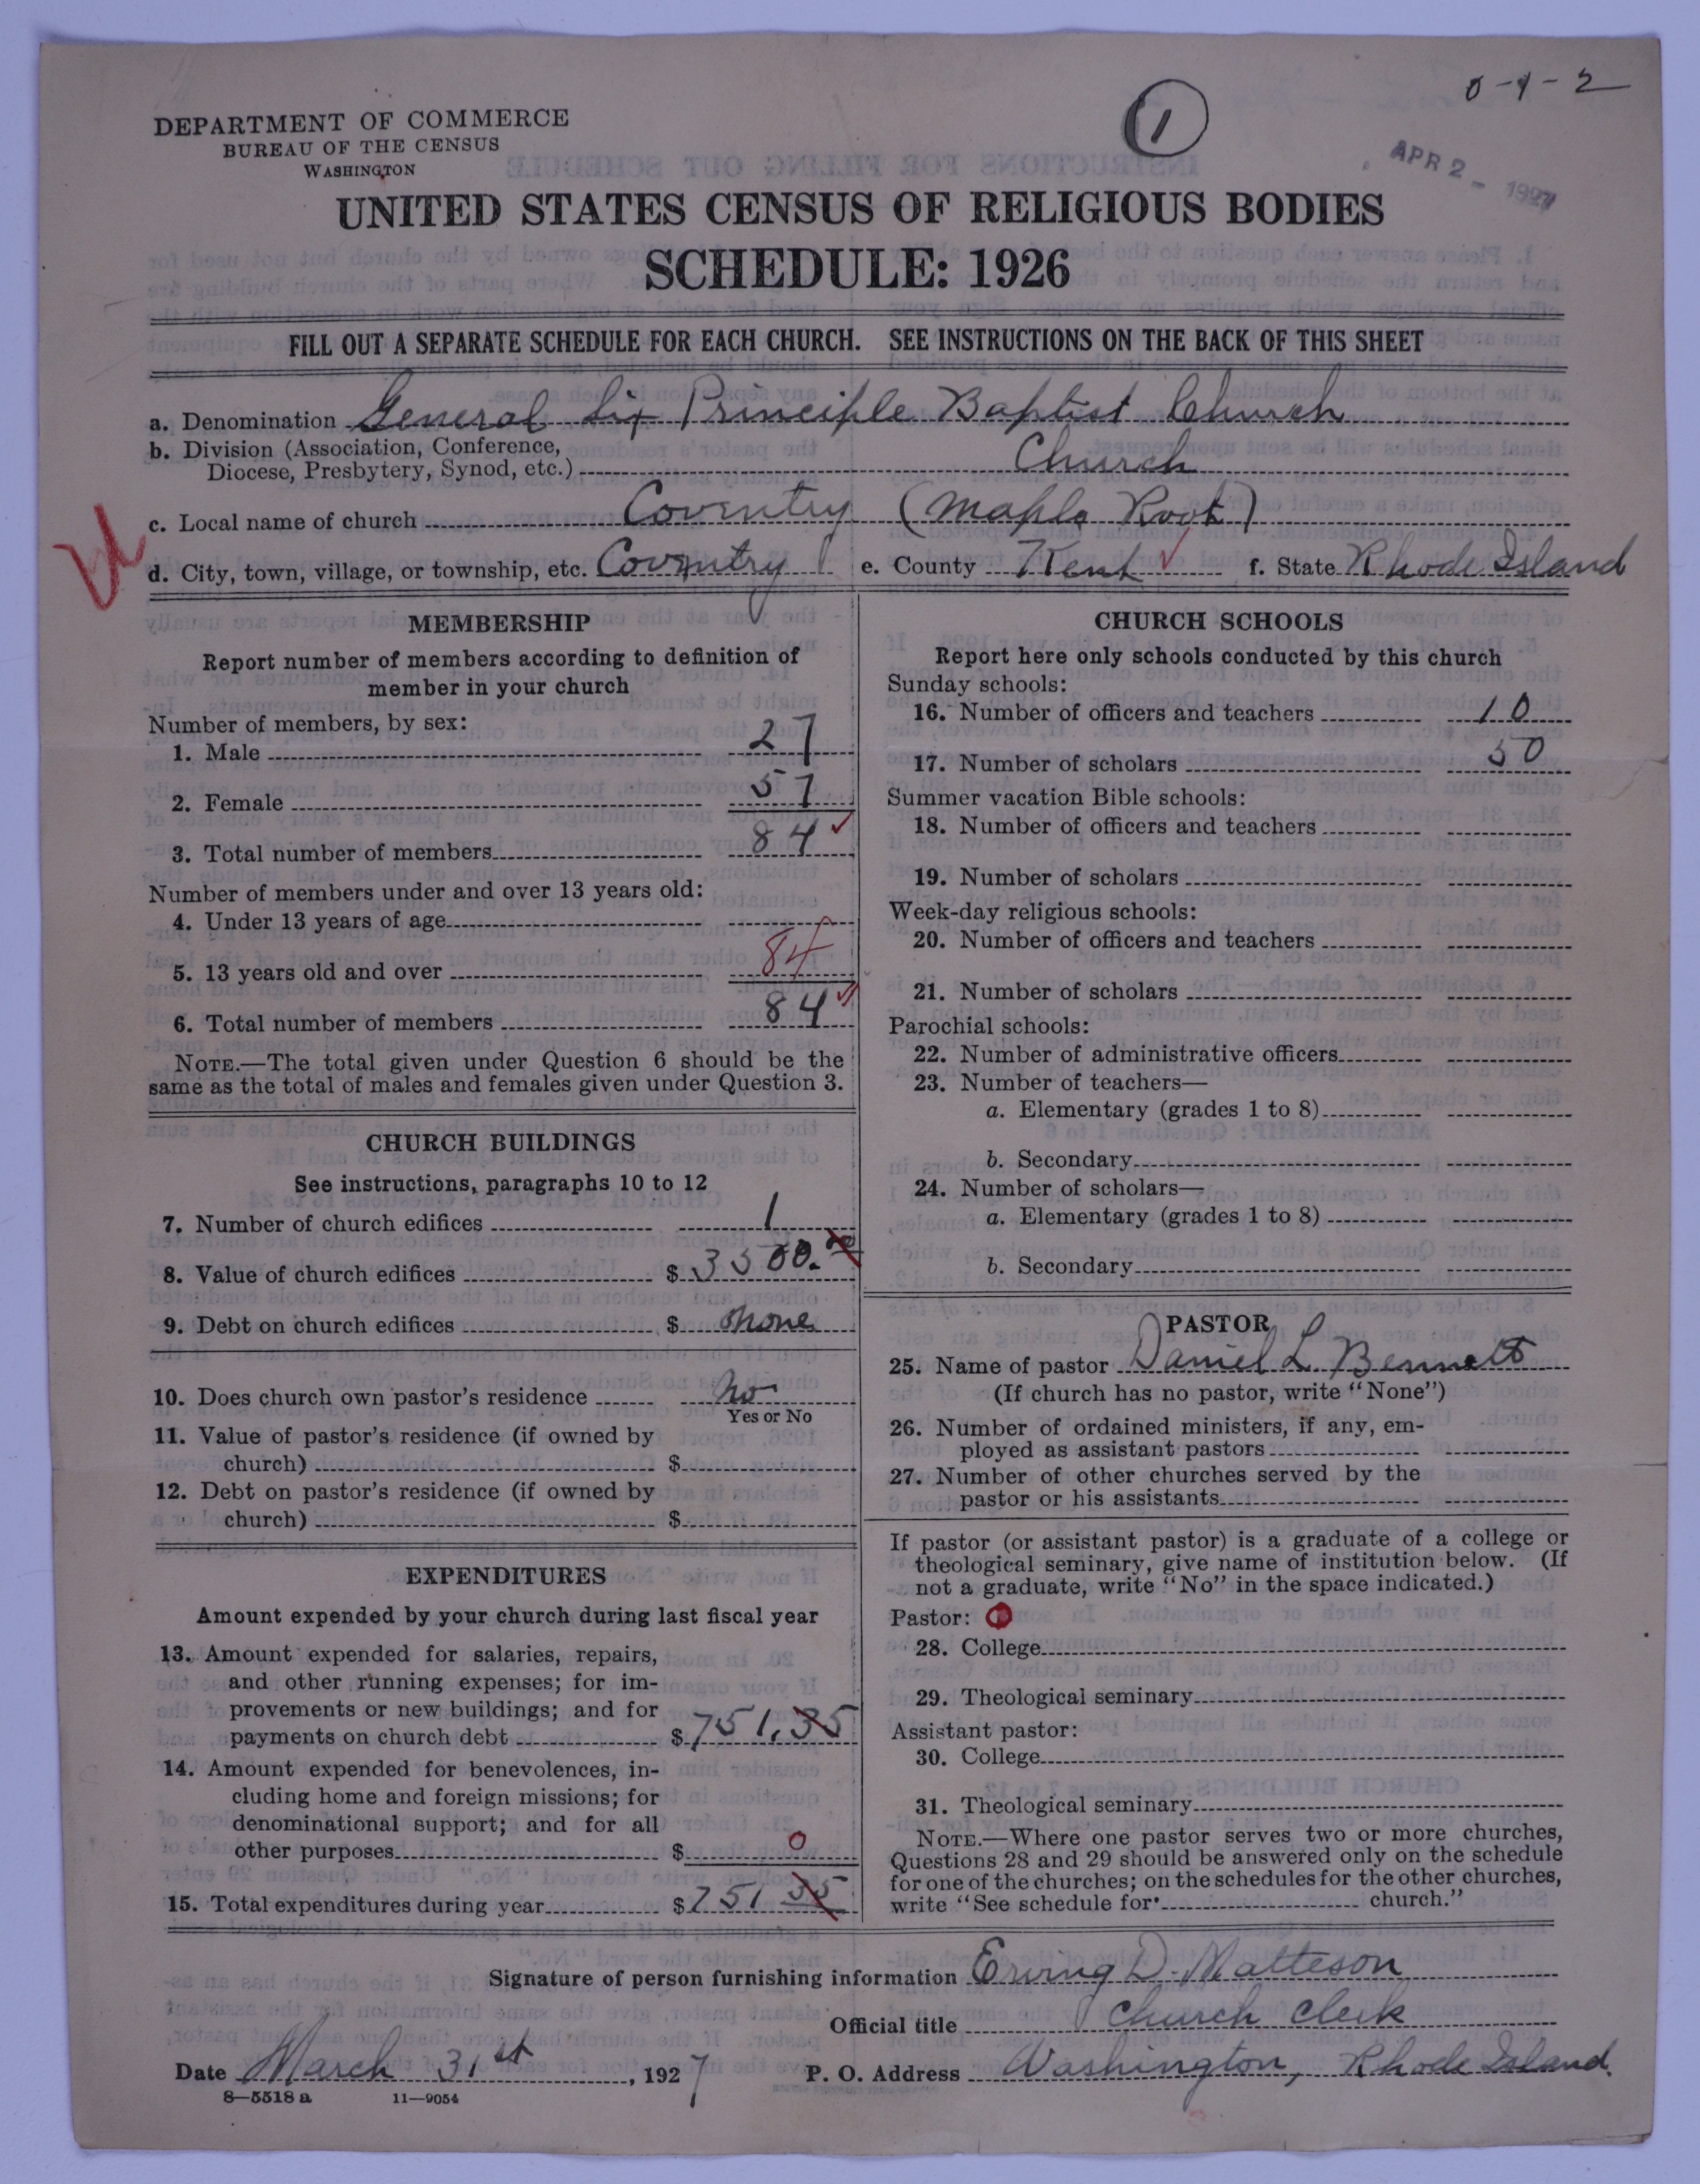 0-1-2
1
DEPARTMENT OF COMMERCE
BUREAU OF THE CENSUS
WASHINGTON
APR 2 - 1927
UNITED STATES CENSUS OF RELIGIOUS BODIES
SCHEDULE: 1926
FILL OUT A SEPARATE SCHEDULE FOR EACH CHURCH. SEE INSTRUCTIONS ON THE BACK OF THIS SHEET
a. Denomination General Six Principle Baptist Church
b. Division (Association, Conference,
Diocese, Presbytery, Synod, etc.) Church
c. Local name of church Coventry (Maple Root)
d. City, town, village, or township, etc. Coventry e. County Kent f. State Rhode Island
MEMBERSHIP
Report number of members according to definition of
member in your church
Number of members, by sex:
1. Male 27
2. Female 57
3. Total number of members 84
Number of members under and over 13 years old:
4. Under 13 years of age
5. 13 years old and over 84
6. Total number of members 84
NOTE.—The total given under Question 6 should be the
same as the total of males and females given under Question 3.
CHURCH BUILDINGS
See instructions, paragraphs 10 to 12
7. Number of church edifices 1
8. Value of church edifices $3500.00
9. Debt on church edifices $ none
10. Does church own pastor's residence No
Yes or No
11. Value of pastor's residence (if owned by
church) $
12. Debt on pastor's residence (if owned by
church) $
EXPENDITURES
Amount expended by your church during last fiscal year
13. Amount expended for salaries, repairs,
and other running expenses; for im-
provements or new buildings; and for
payments on church debt $751.35
14. Amount expended for benevolences, in-
cluding home and foreign missions; for
denominational support; and for all
other purposes $ 0
15. Total expenditures during year $751 35
CHURCH SCHOOLS
Report here only schools conducted by this church
Sunday schools:
16. Number of officers and teachers 10
17. Number of scholars 50
Summer vacation Bible schools:
18. Number of officers and teachers
19. Number of scholars
Week-day religious schools:
20. Number of officers and teachers
21. Number of scholars
Parochial schools:
22. Number of administrative officers
23. Number of teachers—
a. Elementary (grades 1 to 8)
b. Secondary
24. Number of scholars—
a. Elementary (grades 1 to 8)
b. Secondary
PASTOR
25. Name of pastor Daniel L. Bennett
(If church has no pastor, write "None")
26. Number of ordained ministers, if any, em-
ployed as assistant pastors
27. Number of other churches served by the
pastor or his assistants
If pastor (or assistant pastor) is a graduate of a college or
theological seminary, give name of institution below. (If
not a graduate, write "No" in the space indicated.)
Pastor: 0
28. College
29. Theological seminary
Assistant pastor:
30. College
31. Theological seminary
NOTE.—Where one pastor serves two or more churches,
Questions 28 and 29 should be answered only on the schedule
for one of the churches; on the schedules for the other churches,
write "See schedule for church."
Signature of person furnishing information Erving D. Matteson
Official title Church Clerk
Date March 31st, 1927 P. O. Address Washington, Rhode Island.
8—5518 a 11—9054